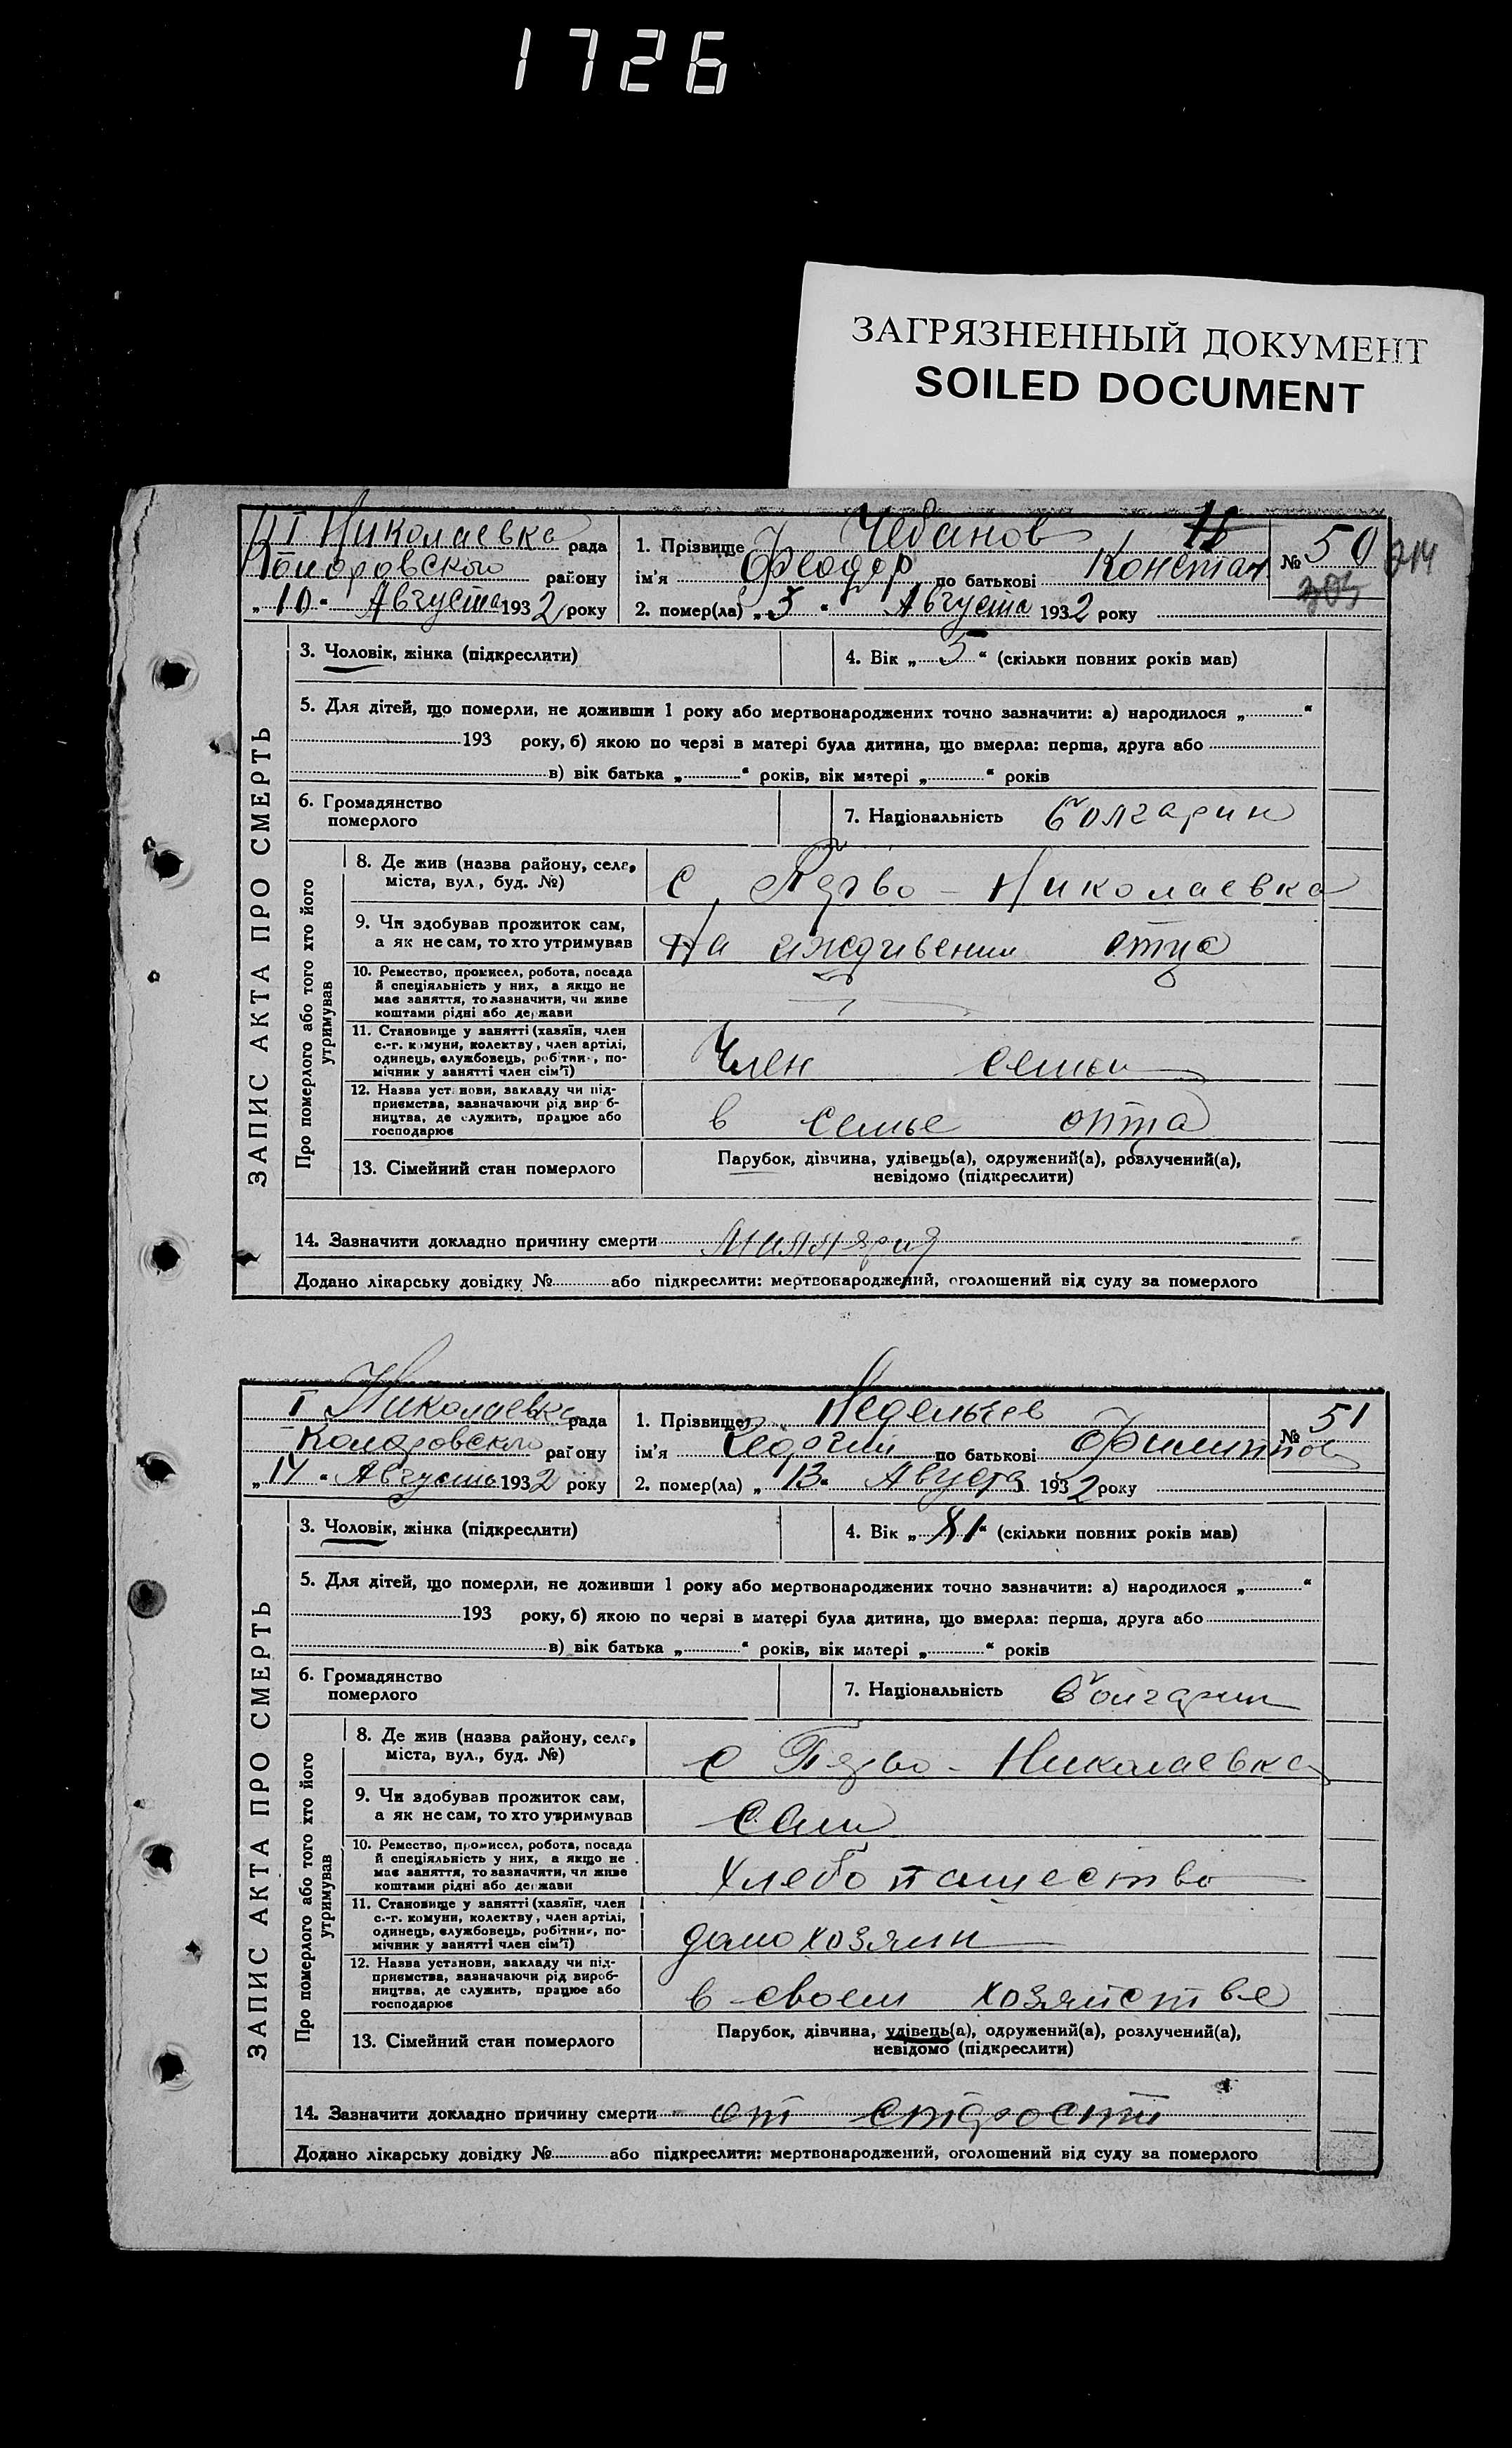 1726
ЗАГРЯЗНЕННЫЙ ДОКУМЕНТ
SOILED DOCUMENT
I Николаевка рада
района району
„10“ Августа 1932 року
1. Прізвище Чебанов
ім'я Феодор по батькові Констан
2. помер(ла) „5“ Августа 1932 року
№ 50
214
305
ЗАПИС АКТА ПРО СМЕРТЬ
3. Чоловік, жінка (підкреслити)
4. Вік „5“ (скільки повних років мав)
5. Для дітей, що померли, не доживши 1 року або мертвонароджених точно зазначити: а) народилося „ “
193 року, б) якою по черзі в матері була дитина, що вмерла: перша, друга або
в) вік батька „ “ років, вік матері „ “ років
6. Громадянство
померлого
7. Національність болгарин
Про померлого або того хто його
утримував
8. Де жив (назва району, села,
міста, вул., буд. №)
с Перво-Николаевка
9. Чи здобував прожиток сам,
а як не сам, то хто утримував
На иждивении отца
10. Ремество, промисел, робота, посада
й спеціяльність у них, а якщо не
має заняття, то зазначити, чи живе
коштами рідні або держави
11. Становище у занятті (хазяїн, член
с.-г. комуни, колективу, член артілі,
одинець, службовець, робітник, по-
мічник у занятті член сім'ї)
Член семьи
12. Назва установи, закладу чи під-
приємства, зазначаючи рід вироб-
ництва, де служить, працює або
господарює
в семье отца
13. Сімейний стан померлого
Парубок, дівчина, удівець(а), одружений(а), розлучений(а),
невідомо (підкреслити)
14. Зазначити докладно причину смерти малярия
Додано лікарську довідку № або підкреслити: мертвонароджений, оголошений від суду за померлого
I Николаевка рада
Коларовского району
„14“ Августа 1932 року
1. Прізвище Недельчев
ім'я Георгий по батькові Филиппов
2. помер(ла) „13“ Августа 1932 року
№ 51
ЗАПИС АКТА ПРО СМЕРТЬ
3. Чоловік, жінка (підкреслити)
4. Вік „81“ (скільки повних років мав)
5. Для дітей, що померли, не доживши 1 року або мертвонароджених точно зазначити: а) народилося „ “
193 року, б) якою по черзі в матері була дитина, що вмерла: перша, друга або
в) вік батька „ “ років, вік матері „ “ років
6. Громадянство
померлого
7. Національність болгарин
Про померлого або того хто його
утримував
8. Де жив (назва району, села,
міста, вул., буд. №)
с Перво-Николаевка
9. Чи здобував прожиток сам,
а як не сам, то хто утримував
сам
10. Ремество, промисел, робота, посада
й спеціяльність у них, а якщо не
має заняття, то зазначити, чи живе
коштами рідні або держави
хлебопашество
11. Становище у занятті (хазяїн, член
с.-г. комуни, колективу, член артілі,
одинець, службовець, робітник, по-
мічник у занятті член сім'ї)
домохозяин
12. Назва установи, закладу чи під-
приємства, зазначаючи рід вироб-
ництва, де служить, працює або
господарює
в своем хозяйстве
13. Сімейний стан померлого
Парубок, дівчина, удівець(а), одружений(а), розлучений(а),
невідомо (підкреслити)
14. Зазначити докладно причину смерти от старости
Додано лікарську довідку № або підкреслити: мертвонароджений, оголошений від суду за померлого